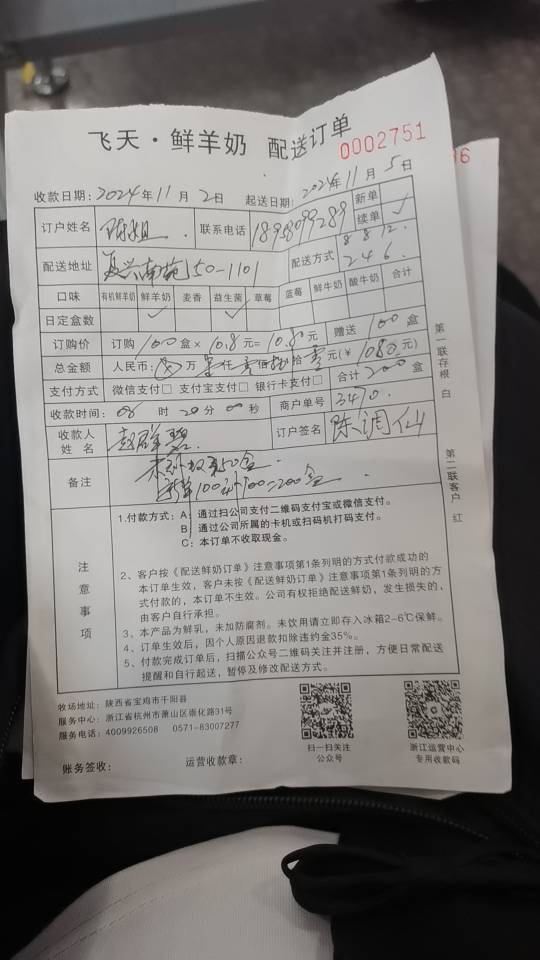 飞天·鲜羊奶 配送订单
0002751
收款日期:2024年11月2日 起送日期:2024年11月5日
订户姓名 陈姐 联系电话 18958099289 新单 续单 ✓
配送地址 复兴南苑150-1101 配送方式 246
口味 有机鲜羊奶 鲜羊奶 麦香 益生菌 草莓 蓝莓 鲜牛奶 酸牛奶 合计
日定盒数 ✓ ✓
订购价 订购100盒×10.8元=10.80元 赠送100盒
总金额 人民币: 万 仟 佰 拾 元(¥1080元) 合计200盒
支付方式 微信支付□ 支付宝支付□ 银行卡支付□
收款时间:08时20分00秒 商户单号 3470
收款人姓名 订户签名 陈调仙
备注 50盒
100 100=200盒
注意事项
1.付款方式:A:通过扫公司支付二维码支付宝或微信支付。
B:通过公司所属的卡机或扫码机打码支付。
C:本订单不收取现金。
2、客户按《配送鲜奶订单》注意事项第1条列明的方式付款成功的
本订单生效,客户未按《配送鲜奶订单》注意事项第1条列明的方
式付款的,本订单不生效。公司有权拒绝配送鲜奶,发生损失的,
由客户自行承担。
3、本产品为鲜乳,未加防腐剂。未饮用请立即存入冰箱2-6℃保鲜。
4、订单生效后,因个人原因退款扣除违约金35%。
5、付款完成订单后,扫描公众号二维码关注并注册,方便日常配送
提醒和自行起送,暂停及修改配送方式。
第一联存根 白
第二联客户 红
牧场地址:陕西省宝鸡市千阳县
服务中心:浙江省杭州市萧山区崇化路31号
服务电话:4009926508 0571-83007277
扫一扫关注
公众号
浙江运营中心
专用收款码
账务签收: 运营收款章: